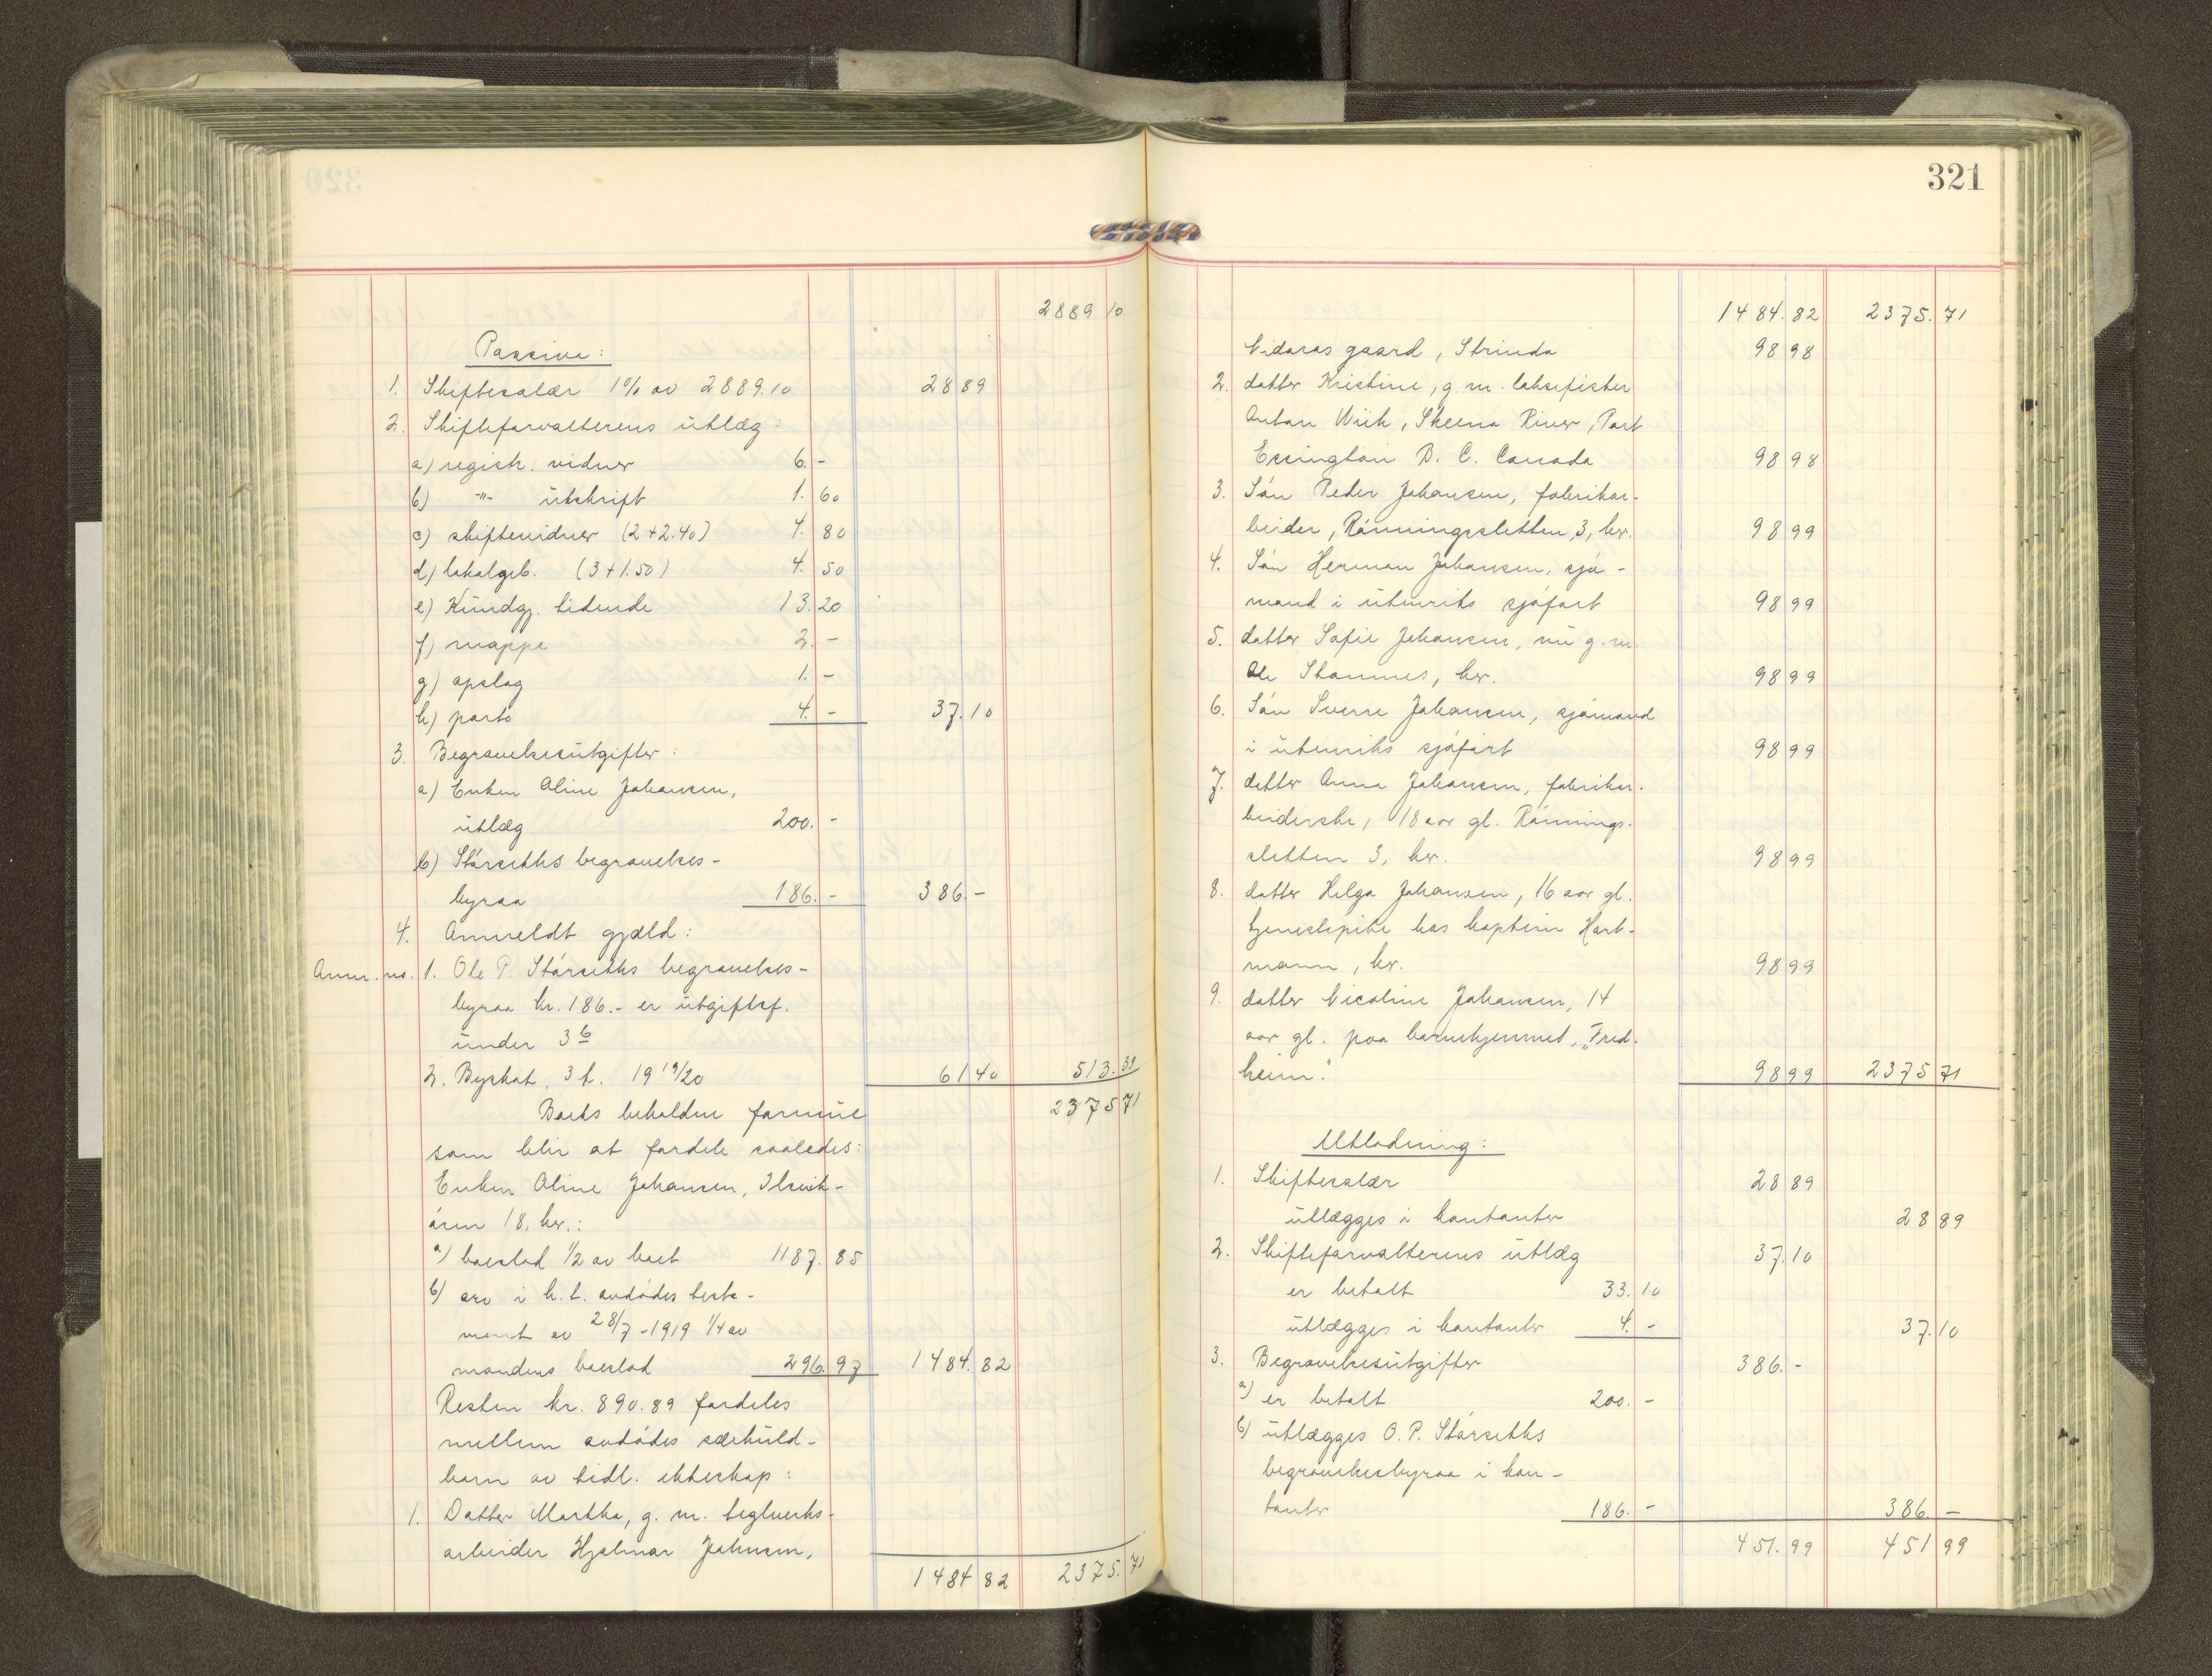 2889 10
Passiva:
1. Skiftesalær 1% av 2889.10 28 89
2. Skifteforvalterens utlæg:
a) registr. vidner 6. -
b) -"- utskrift 1. 60
c) skiftevidner (2+2.40) 4. 80
d) lokalgeb. (3+1.50) 4. 50
e) Kundgj. tidende 13. 20
f) mappe 2. -
g) opslag 1. -
h) porto 4. - 37. 10
3. Begravelsesutgifter:
a) Enken Oline Johansen,
utlæg 200. -
b) Størseths begravelses-
byraa 186. - 386. -
4. Anmeldt gjæld:
Anm. no. 1. Ole P. Størseths begravelses-
byraa kr. 186.- er utgiftsf.
under 3 b
2. Byskat, 3 t. 19 19/20 61 40 513. 39
Boets beholdne formue 2375 71
som blir at fordele saaledes:
Enken Oline Johansen, Ilsvik-
øren 18, her.:
a) boeslod 1/2 av boet 1187. 85
b) arv i h. t. avdødes testa-
ment av 28/7-1919 1/4 av
mandens boeslod 296. 97 1484. 82
Resten kr. 890.89 fordeles
mellem avdødes særkuld-
barn av tidl. ekteskap:
1. Datter Martha, g. m. teglverks-
arbeider Hjalmar Johnsen,
1484 82 2375. 71
321
1484. 82 2375. 71
Nidaros gaard, Strinda 98 98
2. datter Kristine, g. m. laksefisker
Anton Wiik, Skeena River, Port
Essington B. C. Canada 98 98
3. Søn Peder Johansen, fabrikar-
beider, Rønningsletten, 3, her. 98 99
4. Søn Herman Johansen, sjø-
mand i utenriks sjøfart 98 99
5. datter Sofie Johansen, nu g. m.
Ole Stamnes, her. 98 99
6. Søn Sverre Johansen, sjømand
i utenriks sjøfart 98 99
7. datter Anna Johansen, fabrikar-
beiderske, 18 aar gl. Rønnings-
sletten 3, her. 98 99
8. datter Helga Johansen, 16 aar gl.
tjenestepike hos kaptein Hart-
mann, her. 98 99
9. datter Nicoline Johansen, 14
aar gl. paa barnehjemmet, "Fred-
heim". 98 99 2375 71
Utlodning:
1. Skiftesalær 28 89
utlægges i kontanter 28 89
2. Skifteforvalterens utlæg 37. 10
er betalt 33. 10
utlægges i kontanter 4. - 37. 10
3. Begravelsesutgifter 386. -
a) er betalt 200. -
b) utlægges O. P. Størseths
begravelsesbyraa i kon-
tanter 186. - 386. -
451. 99 451 99